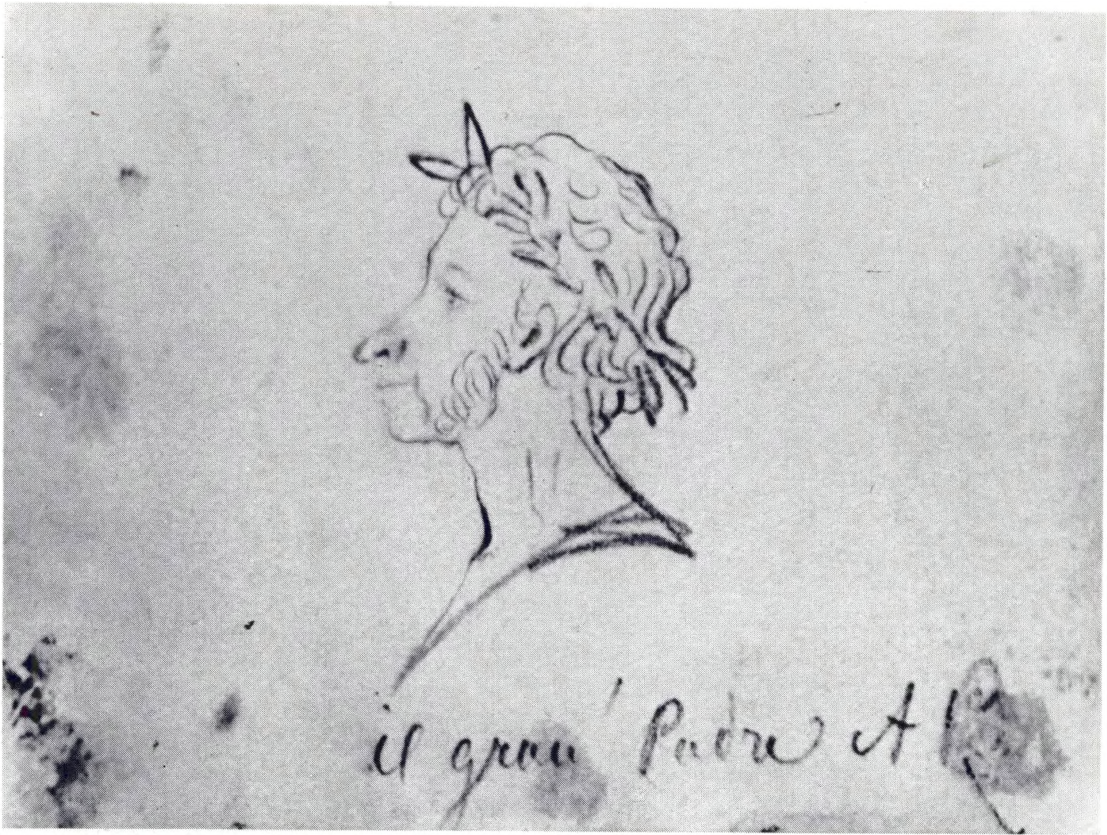 il gran' Padre A